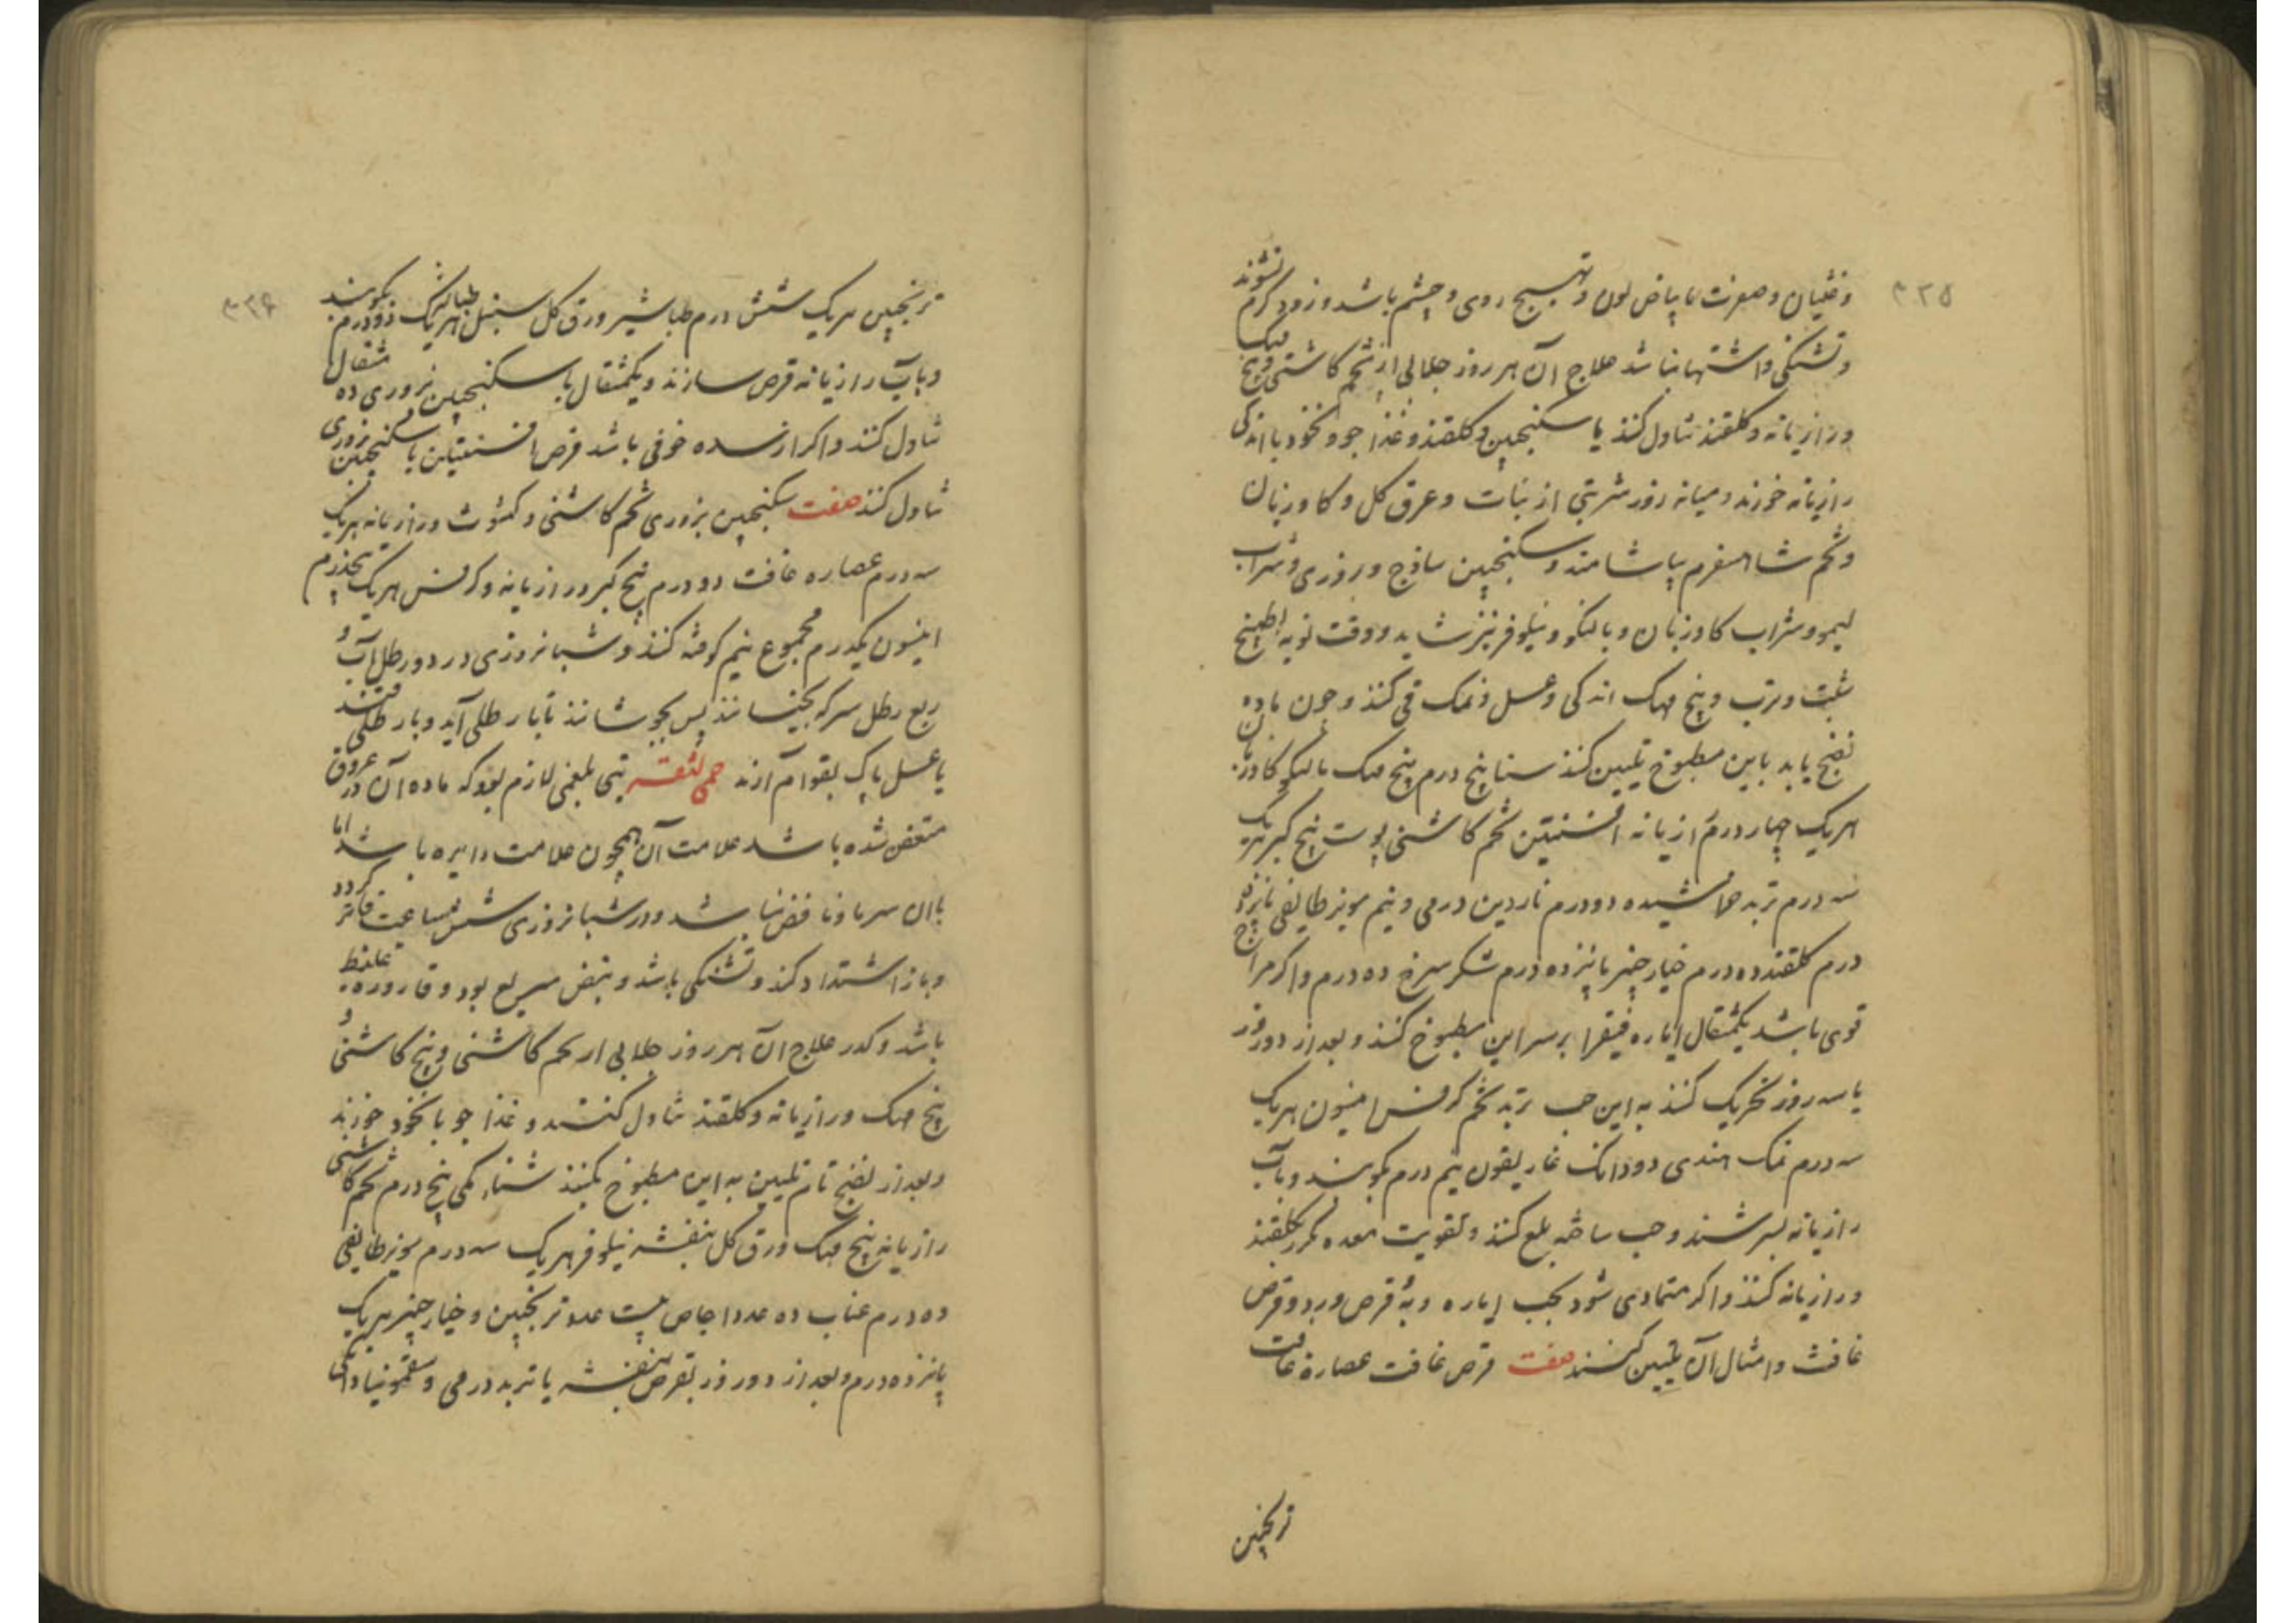 ۳۲۵
وغثیان وصفرت یا بیاض لون وتهیج روی وچشم باشد وزود کرم نشوند
وتشنکی واشتها نباشد علاج آن هر روز جلابی از تخم کاشنی وبیخ مهک
ورازیانه وکلقند تناول کنند یا سکنجبین وکلقند وغذا جو ونخود با اندکی
رازیانه خورند ومیانه روز شربتی از نبات وعرق کل وکاوزبان
وتخم شاهسفرم بیاشامند وسکنجبین ساذج وبزوری وشراب
لیمو وشراب کاوزبان وبالنکو ونیلوفر نیز شاید ووقت نوبه بطبیخ
شبت وترب وبیخ مهک اندکی وعسل ونمک قی کنند وچون ماده
نضج یابد باین مطبوخ تلیین کنند سنا پنج درم بیخ مهک بالنکو کاوزبان
هریک چهار درم رازیانه افسنتین تخم کاشنی پوست بیخ کبر هریک
سه درم تربد خراشیده دو درم ناردین درمی ونیم مویز طایفی پانزده
درم کلقند ده درم خیارچنبر پانزده درم شکر سرخ ده درم واکر مزاج
قوی باشد یکمثقال ایاره فیقرا بر سر این مطبوخ کنند وبعد از دو روز
یا سه روز تحریک کنند به این حب تربد تخم کرفس انیسون هریک
سه درم نمک هندی دو دانک غاریقون نیم درم بکوبند وبآب
رازیانه بسرشند وحب ساخته بلع کنند وتقویت معده کرر بکلقند
ورازیانه کنند واکر متمادی شود بحب ایاره وبه قرص ورد وقرص
غافث وامثال آن تلیین کنند صفت قرص غافت عصاره غافت
ترنجبین
۳۲۶
ترنجبین هریک شش درم طباشیر ورق کل سنبل هریک دو درم بکوبند
وبآب رازیانه قرص سازند ویکمثقال با سکنجبین بزوری ده مثقال
تناول کنند واکر از سده خوفی باشد قرص افسنتین با سکنجبین بزوری
تناول کنند صفت سکنجبین بزوری تخم کاشنی وکشوث ورازیانه هریک
سه درم عصاره غافت دو درم بیخ کبر ورازیانه وکرفس هریک پنجدرم
انیسون یکدرم مجموع نیم کوفته کنند وشبانروزی در دو رطل آب و
ربع رطل سرکه بخیسانند پس بجوشانند تا بار طلی آید وبا رطلی قند
یا عسل پاک بقوام آرند حمی لثقه تبی بلغمی لازم بود که ماده آن در عروق
متعفن شده باشد علامت آن همچون علامت دایره باشد اما
با ان سرما ونافض نباشد ودر شبانروزی شش ساعت فاتر کردد
وباز اشتداد کند وتشنکی باشد ونبض سریع بود وقاروره غلیظ
باشد وکدر علاج آن هر روز جلابی از تخم کاشنی وبیخ کاشنی و
بیخ مهک ورازیانه وکلقند تناول کنند وغذا جو با نخود خورند
وبعد از نضج تام تلیین به این مطبوخ بکنند سناء مکی پنج درم تخم کاشنی
رازیانه بیخ مهک ورق کل بنفشه نیلوفر هریک سه درم مویز طایفی
ده درم عناب ده عدد اجاص بیست عدد ترنجبین وخیارچنبر هریک
پانزده درم وبعد از دو روز بقرص بنفشه یا تربد درمی وسقمونیا دانکی